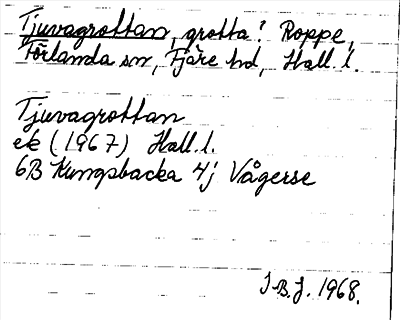 Tjuvagrottan, grotta? Roppe,
Förlanda sn, Fjäre hd, Hall. l.
Tjuvagrottan
ek (1967) Hall. l.
6B Kungsbacka 4j Vågerse
I.B.J. 1968.